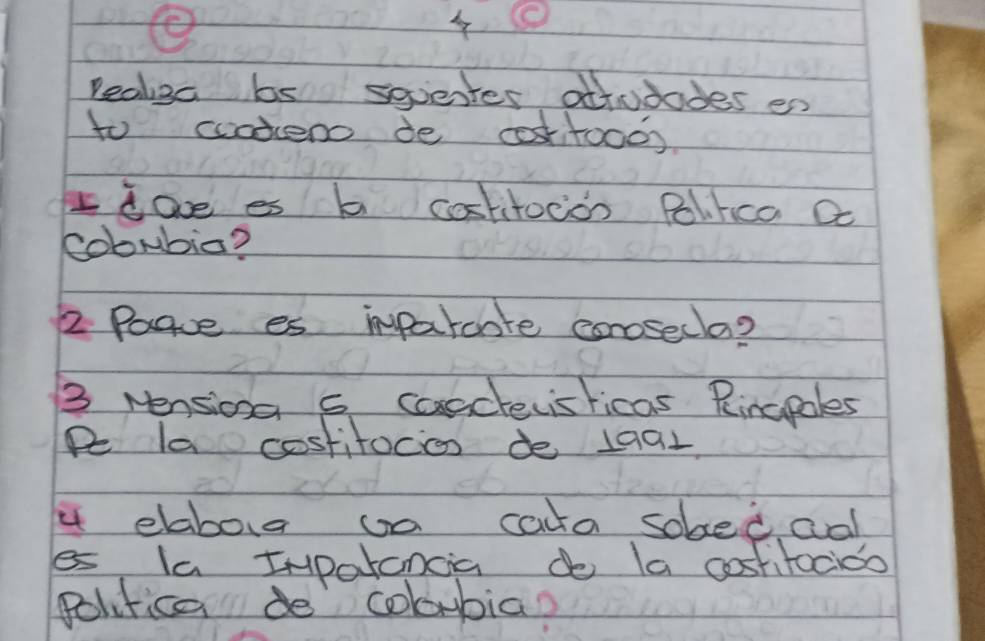 Realiza los sguientes attvidades en
tu cuaderno de costitooón.
1 ¿Que es la costitoción Política De
Colombia?
2 Poque es inpartante conoserla?
3 Mensiona 5 caracteristicas Princapales
De la costitocion de 1991.
4 elabora una carta sobre ¿cual
es la Inpartancia de la costitoción
Politica de colombia?